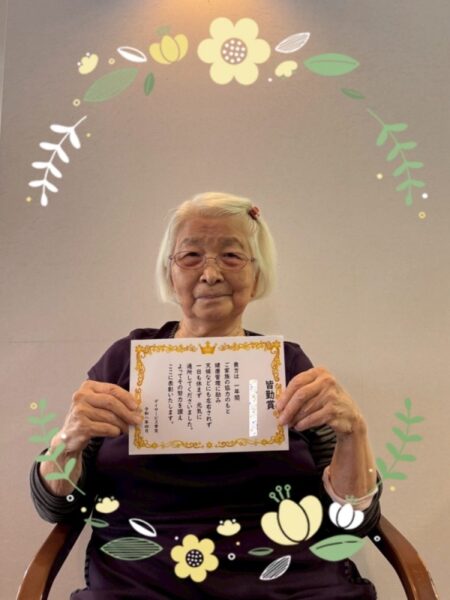 皆勤賞
貴方は、一年間
ご家族の協力のもと
健康管理に励み
天候などにも左右されず
一日も休まず 元気に
通所してくださいました。
よってその努力を讃え
ここに表彰いたします。
令和八年四月